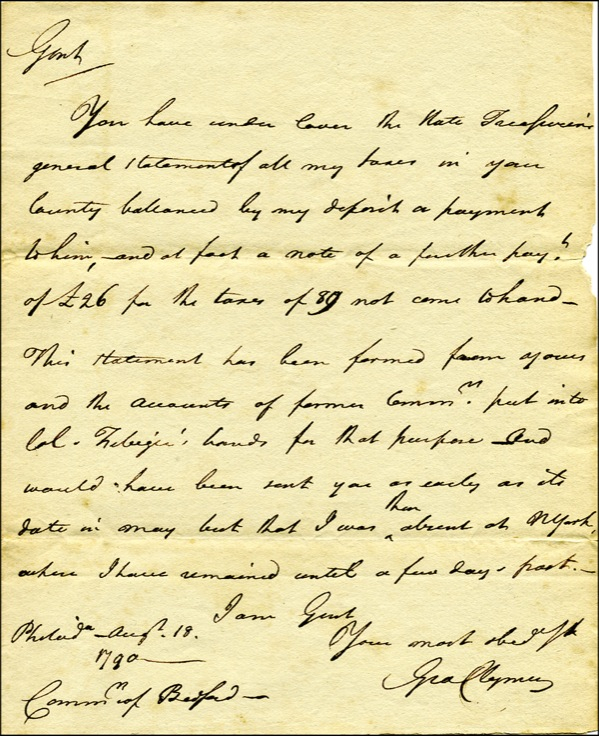 Gent
You have under cover the State Treasurers
general statement of all my taxes in your
County ballanced by my deposit a payment
to him, and at foot a note of a further pay.t
of £26 for the taxes of 89 not come to hand—
This statement has been formed from yours
and the accounts of former Comm.rs put into
Col. hands for that purpose and
would have been sent you as early as its
then
date in may but that I was absent at NYork,
where I have remained until a few days past.—
I am Gent
Philad.a Aug.t 18. Your most obed.t
1790
Geo Clymer
Comm.rs of Bedford—